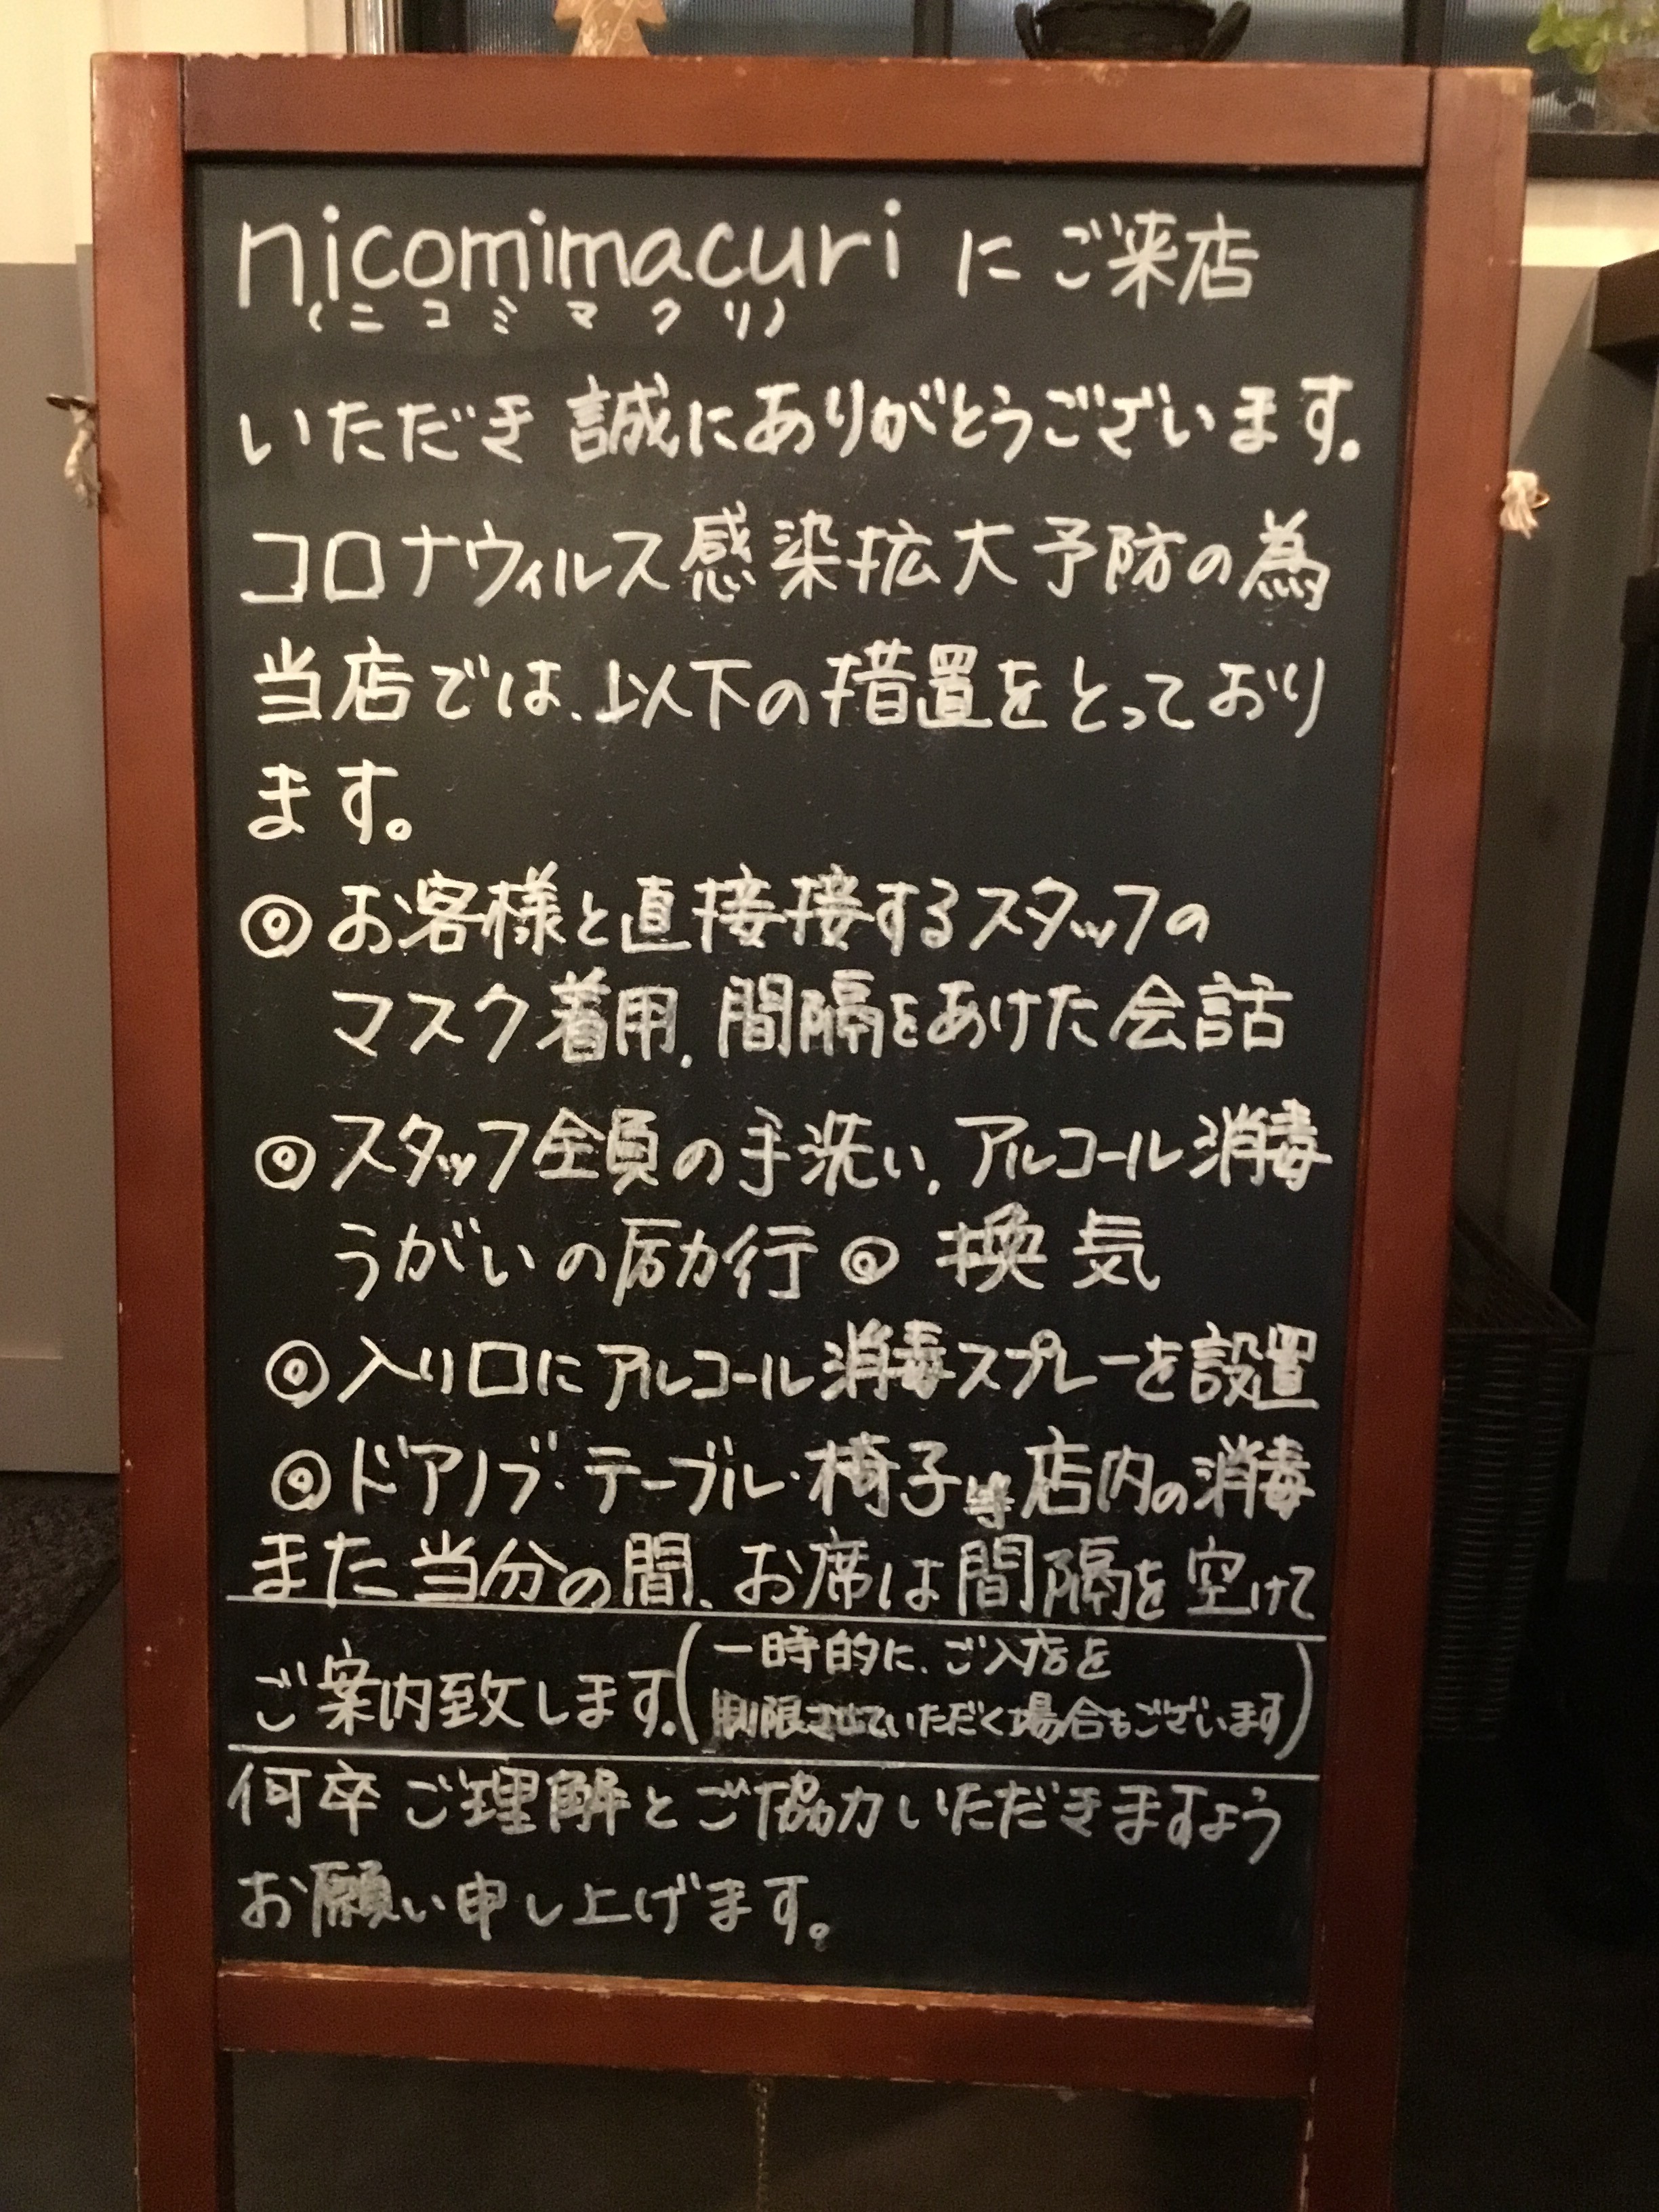 nicomimacuri にご来店
(ニコミマクリ)
いただき 誠にありがとうございます。
コロナウィルス感染拡大予防の為
当店では、以下の措置をとっており
ます。
◎お客様と直接接するスタッフの
マスク着用、間隔をあけた会話
◎スタッフ全員の手洗い、アルコール消毒
うがいの励行 ◎ 換気
◎入り口にアルコール消毒スプレーを設置
◎ドアノブ・テーブル・椅子等店内の消毒
また当分の間、お席は間隔を空けて
ご案内致します。(一時的に、ご入店を
制限させていただく場合もございます)
何卒ご理解とご協力いただきますよう
お願い申し上げます。